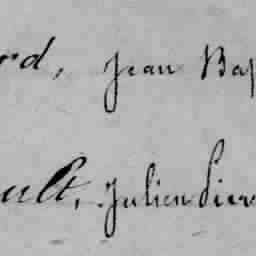 rd, Jean Bap
ult, Julien Pier